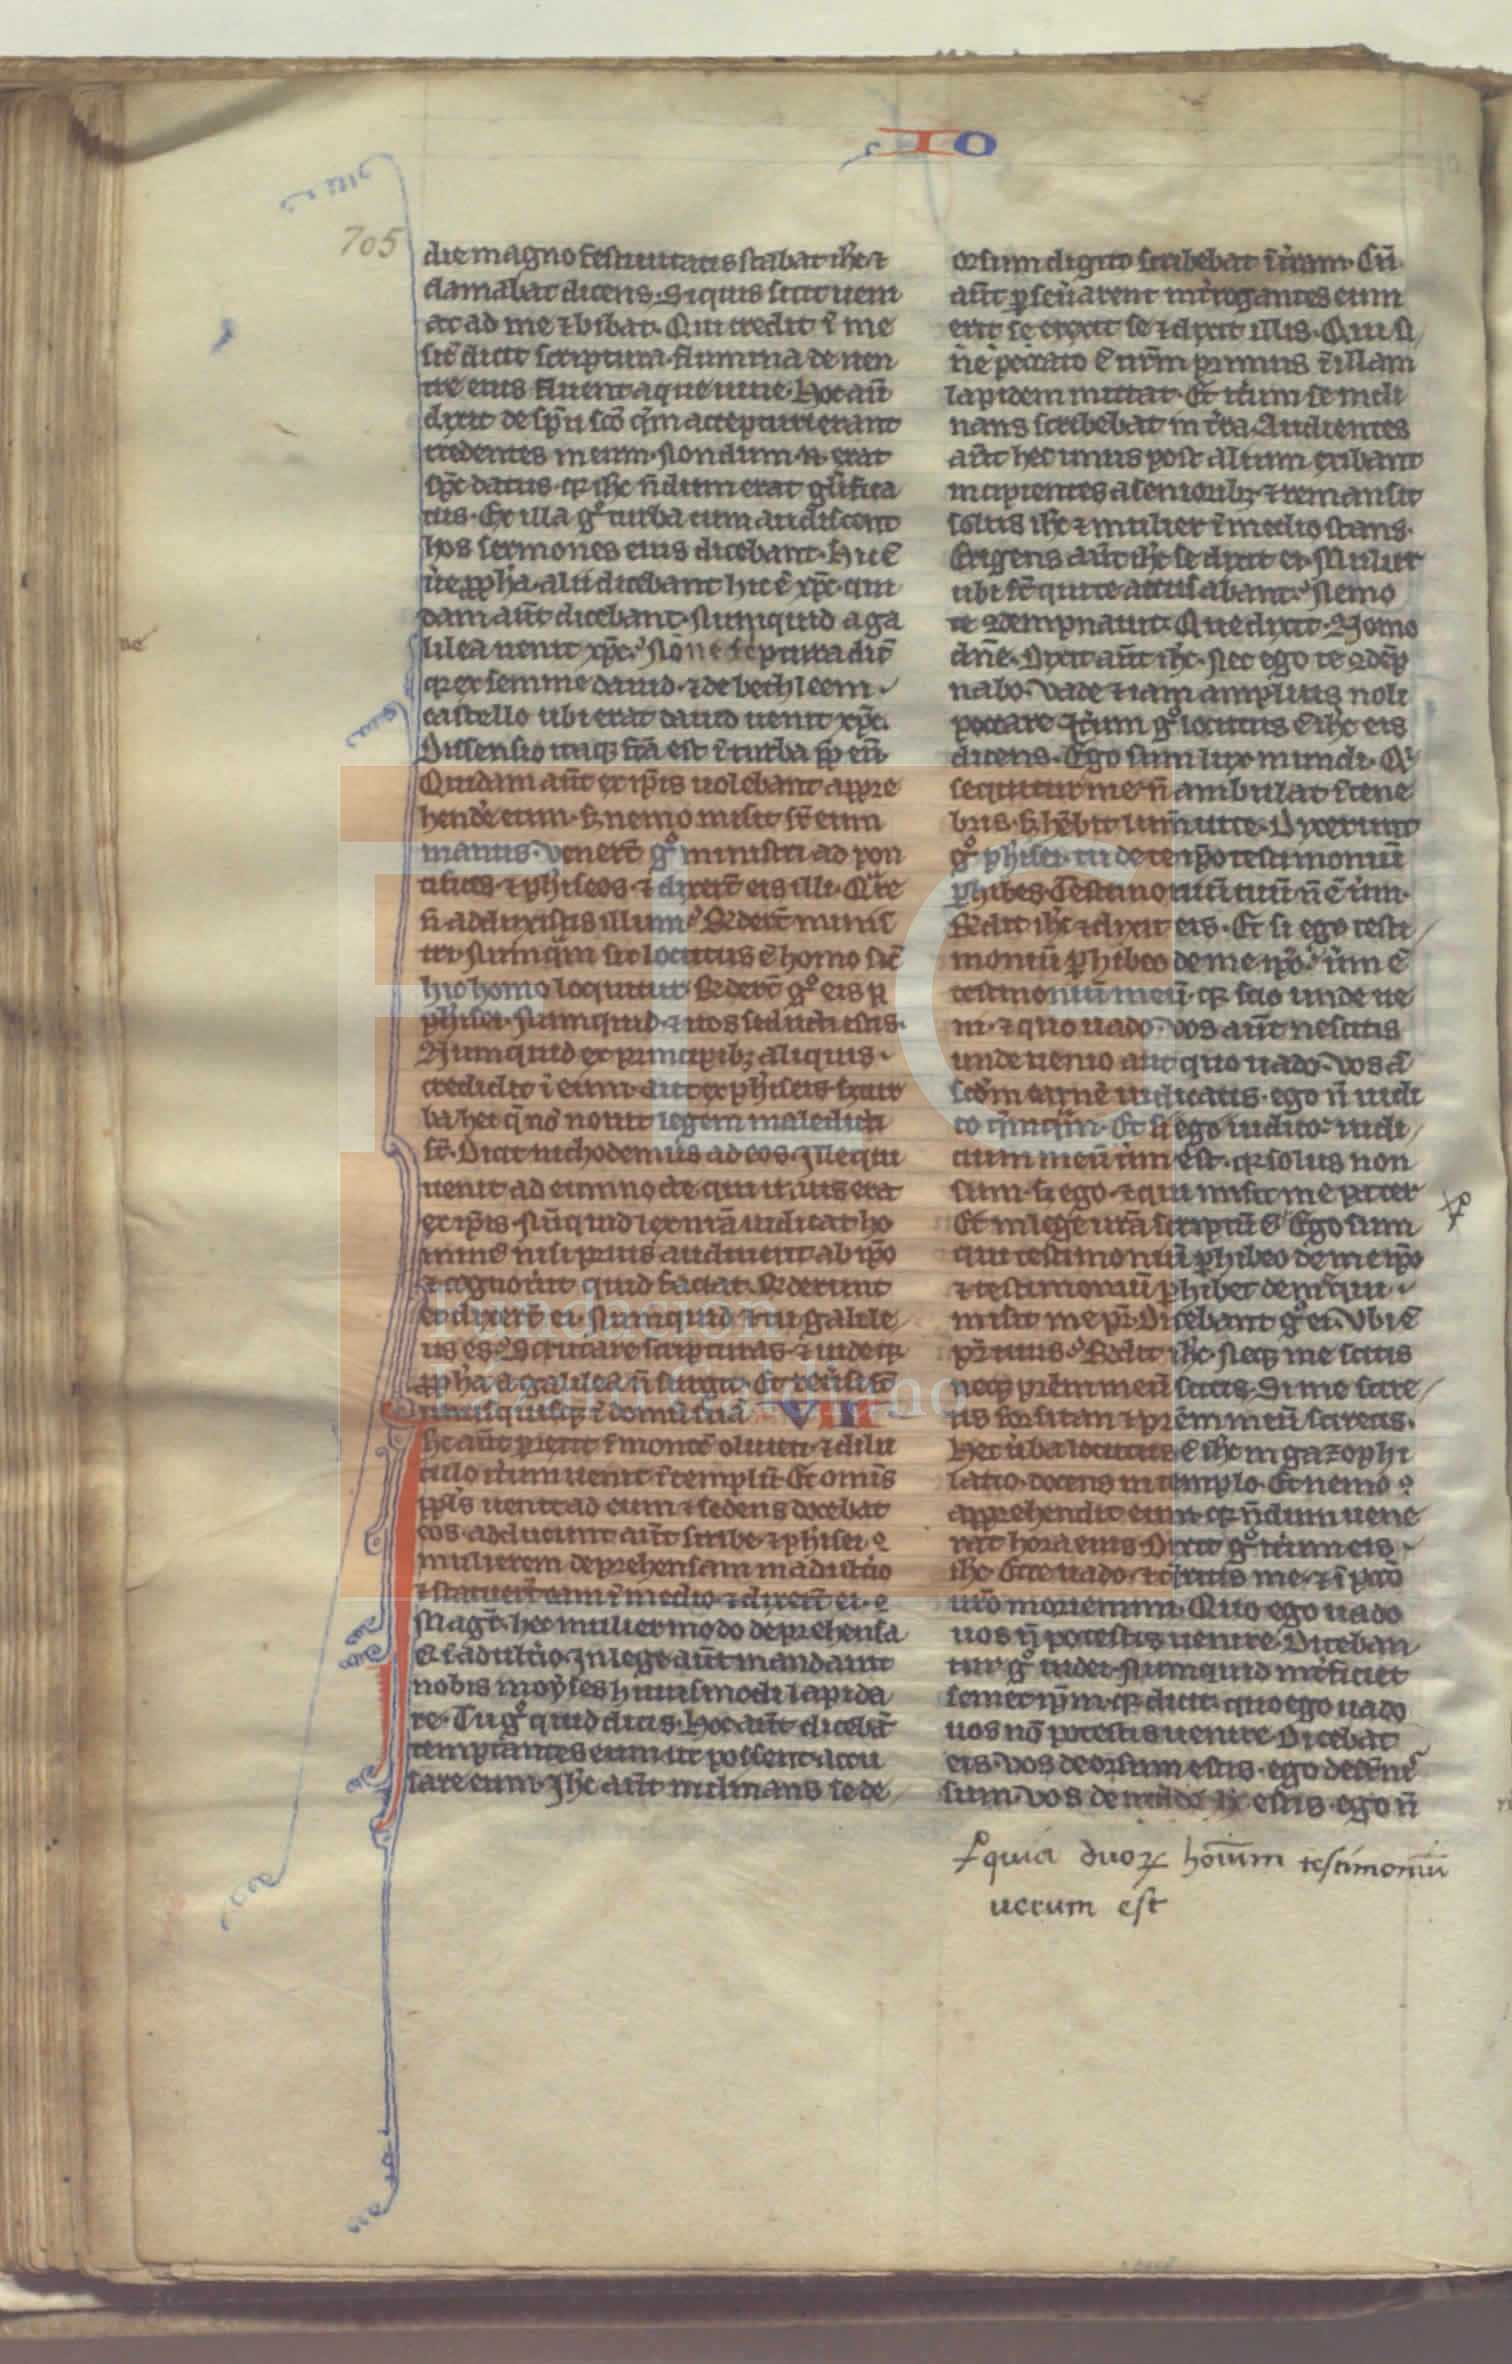 IO
705
die magno festiuitatis stabat ih̄c ⁊
clamabat dicens. Si quis sitit ueni
at ad me ⁊ bibat. Qui credit ī me
sic̄ dicit scriptura. flumina de uen
tre eius fluent aque uiue. Hoc aūt
dixit de sp̄u sc̄o q̄m accepturi erant
credentes in eum. Nondum .n. erat
sp̄c datus. q̄ ih̄c n̄dum erat gl̄ifica
tus. Ex illa g° turba cum audissent
hos sermones eius dicebant. Hic ē
ūe ꝓph̄a. alii dicebant hic ē xp̄c. qui
dam aūt dicebant. Nunquid a ga
lilea uenit xp̄c? Nōne sc̄ptura dic̄
q̄ ex semine dauid. ⁊ de bethleem
castello ubi erat dauid uenit xp̄c.
Dissensio itaq̄ fc̄a est ī turba ꝓp eū.
Quidam aūt ex ip̄is uolebant appre
hend̄e eum. sꝫ nemo misit sr̄ eum
manus. Venert̄ g° ministri ad pon
tifices ⁊ ph̄iseos. ⁊ dixert̄ eis illi. Q̄re
n̄ adduxistis illum? R̄ndert̄ minis
tri. Nūnq̄m sic locutus ē homo sic̄
hic homo loquitur. R̄ndert̄ g° eis
ph̄isei. Nunquid ⁊ uos seducti estis.
Nunquid ex principibꝫ aliquis
credidit ī eum. aut ex ph̄iseis sꝫ tur
ba hec q̄ nō nouit legem maledicti
st̄. Dicit nichodemus ad eos. Ille qui
uenit ad eum nocte qui unus erat
ex ip̄is. Nūquid lex nr̄a iudicat ho
minē nisi prius audiuerit ab ip̄o
⁊ cognou̅it quid faciat. R̄nderunt
et dixert̄ ei. Nunquid ⁊ tu galile
us es? Scrutare scripturas ⁊ uide q̄
ꝓph̄a a galilea n̄ surgit. Et reūsi st̄
unusquisq̄ ī domū suā VIII
Ih̄c aūt p̄rexit ī montē oliueti. ⁊ dilu
culo it̄um uenit ī templū. Et omīs
ppl̄s uenit ad eum ⁊ sedens docebat
eos. adducunt aūt scribe ⁊ ph̄isei
mulierem deprehensam in adult̄io
⁊ statuert̄ eam ī medio. ⁊ dixert̄ ei.
Magr̄. hec mulier modo deprehensa
ē ī adult̄io. In lege aūt mandauit
nobis moyses huiusmodi lapida
re. Tu g° quid dicis. Hoc aūt dicebāt
temptantes eum ut possent accu
sare eum. Ih̄c aūt inclinans se de
orsum digito scribebat ī t̄ram. Cū
aūt p̄seūarent int̄rogantes eum
erexit se ⁊ dixit illis. Qui si
ne peccato ē ur̄m primus ī illam
lapidem mittat. Et it̄um se incli
nans scribebat in t̄ra. Audientes
aūt hec unus post alium exibant
incipientes a senioribꝫ ⁊ remansit
solus ih̄c ⁊ mulier ī medio stans.
Erigens aūt ih̄c se dixit ei. Mulier
ubi st̄ qui te accusabant? Nemo
te ꝯdempnauit. Que dixit. Nemo
dn̄e. Dixit aūt ih̄c. Nec ego te ꝯdēp
nabo. Vade ⁊ iam amplius noli
peccare. It̄um g° locutus ē ih̄c eis
dicens. Ego sum lux mundi. Qi
sequitur me n̄ ambulat ī tene
bris. sꝫ hēbit lum̄ uite. Dixerunt
g° ph̄isei. tu de te ip̄o testimoniū
p̄hibes. Testimoniū tuū n̄ ē ūm.
R̄ndit ih̄c ⁊ dixit eis. Et si ego testi
moniū p̄hibeo de me ip̄o. ūm ē
testimoniū meū. q̄ scio unde ue
ni. ⁊ quo uado. Vos aūt nescitis
unde uenio aut quo uado. Vos
sc̄dm carnē iudicatis. ego n̄ iudi
co q̄mq̄m. Et si ego iudico. iudi
cium meū ūm est. q̄ solus non
sum. sꝫ ego. ⁊ qui misit me pater
Et in lege ur̄a scriptū ē Ego sum
qui testimoniū p̄hibeo de me ip̄o
⁊ testimoniū p̄hibet de me qui
misit me pr̄. Dicebant g° ei. Vbi ē
pr̄ tuus? R̄ndit ih̄c. Neq̄ me scitis
neq̄ pr̄em meū scitis. Si me scire
tis forsitan ⁊ pr̄em meū sciretis.
Hec ūba locutus ē ih̄c in gazophi
lacio. docens in templo. Et nemo
apprehendit eum. q̄ n̄dum uene
rat hora eius. Dixit g° it̄um eis
ih̄c. Ecce uado. ⁊ q̄retis me. ⁊ ī pcc̄o
ur̄o moriemini. Quo ego uado
uos n̄ potestis uenire. Diceban
tur g° iudei. Nunquid int̄ficiet
semet ip̄m. q̄ dicit. quo ego uado
uos nō potestis uenire. Dicebat
eis. Vos deorsum estis. ego de sup̄nis
sum. Vos de mūdo h̄ estis. ego n̄
quia duoꝝ hoīum testimoniū
uerum est
FLG
Fundación
Lázaro Galdiano